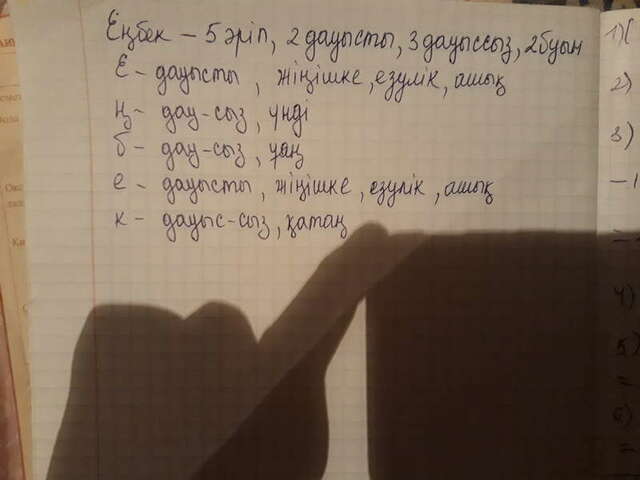 Еңбек – 5 әріп, 2 дауысты, 3 дауыссыз, 2 буын
Е – дауысты, жіңішке, езулік, ашық
ң – дау-сыз, үнді
б – дау-сыз, ұяң
е – дауысты, жіңішке, езулік, ашық
к – дауыс-сыз, қатаң
1)
2)
3)
4)
5)
6)